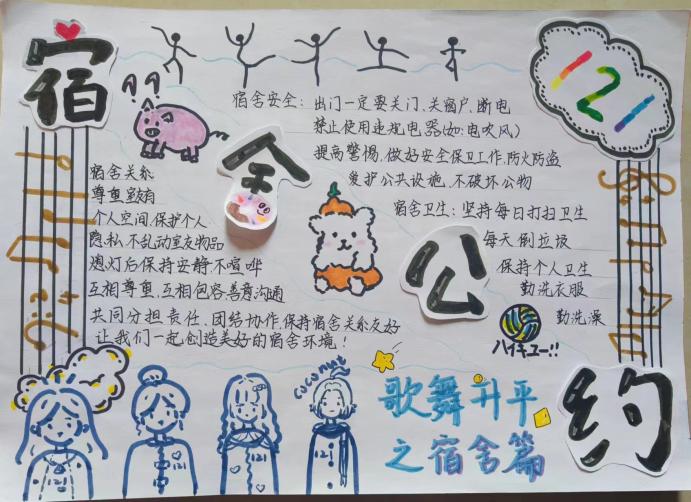 宿舍公约
121
宿舍安全：出门一定要关门、关窗户、断电
禁止使用违规电器(如:电吹风)
提高警惕，做好安全保卫工作，防火防盗
爱护公共设施，不破坏公物
宿舍卫生：坚持每日打扫卫生
每天倒垃圾
保持个人卫生
勤洗衣服
勤洗澡
ハイキュー!!
宿舍关系
尊重室友
个人空间，保护个人
隐私，不乱动室友物品
熄灯后保持安静，不喧哗
互相尊重，互相包容，善意沟通
共同分担责任、团结协作，保持宿舍关系友好
让我们一起创造美好的宿舍环境！
coconut
歌舞升平
之宿舍篇
121
121
121
121